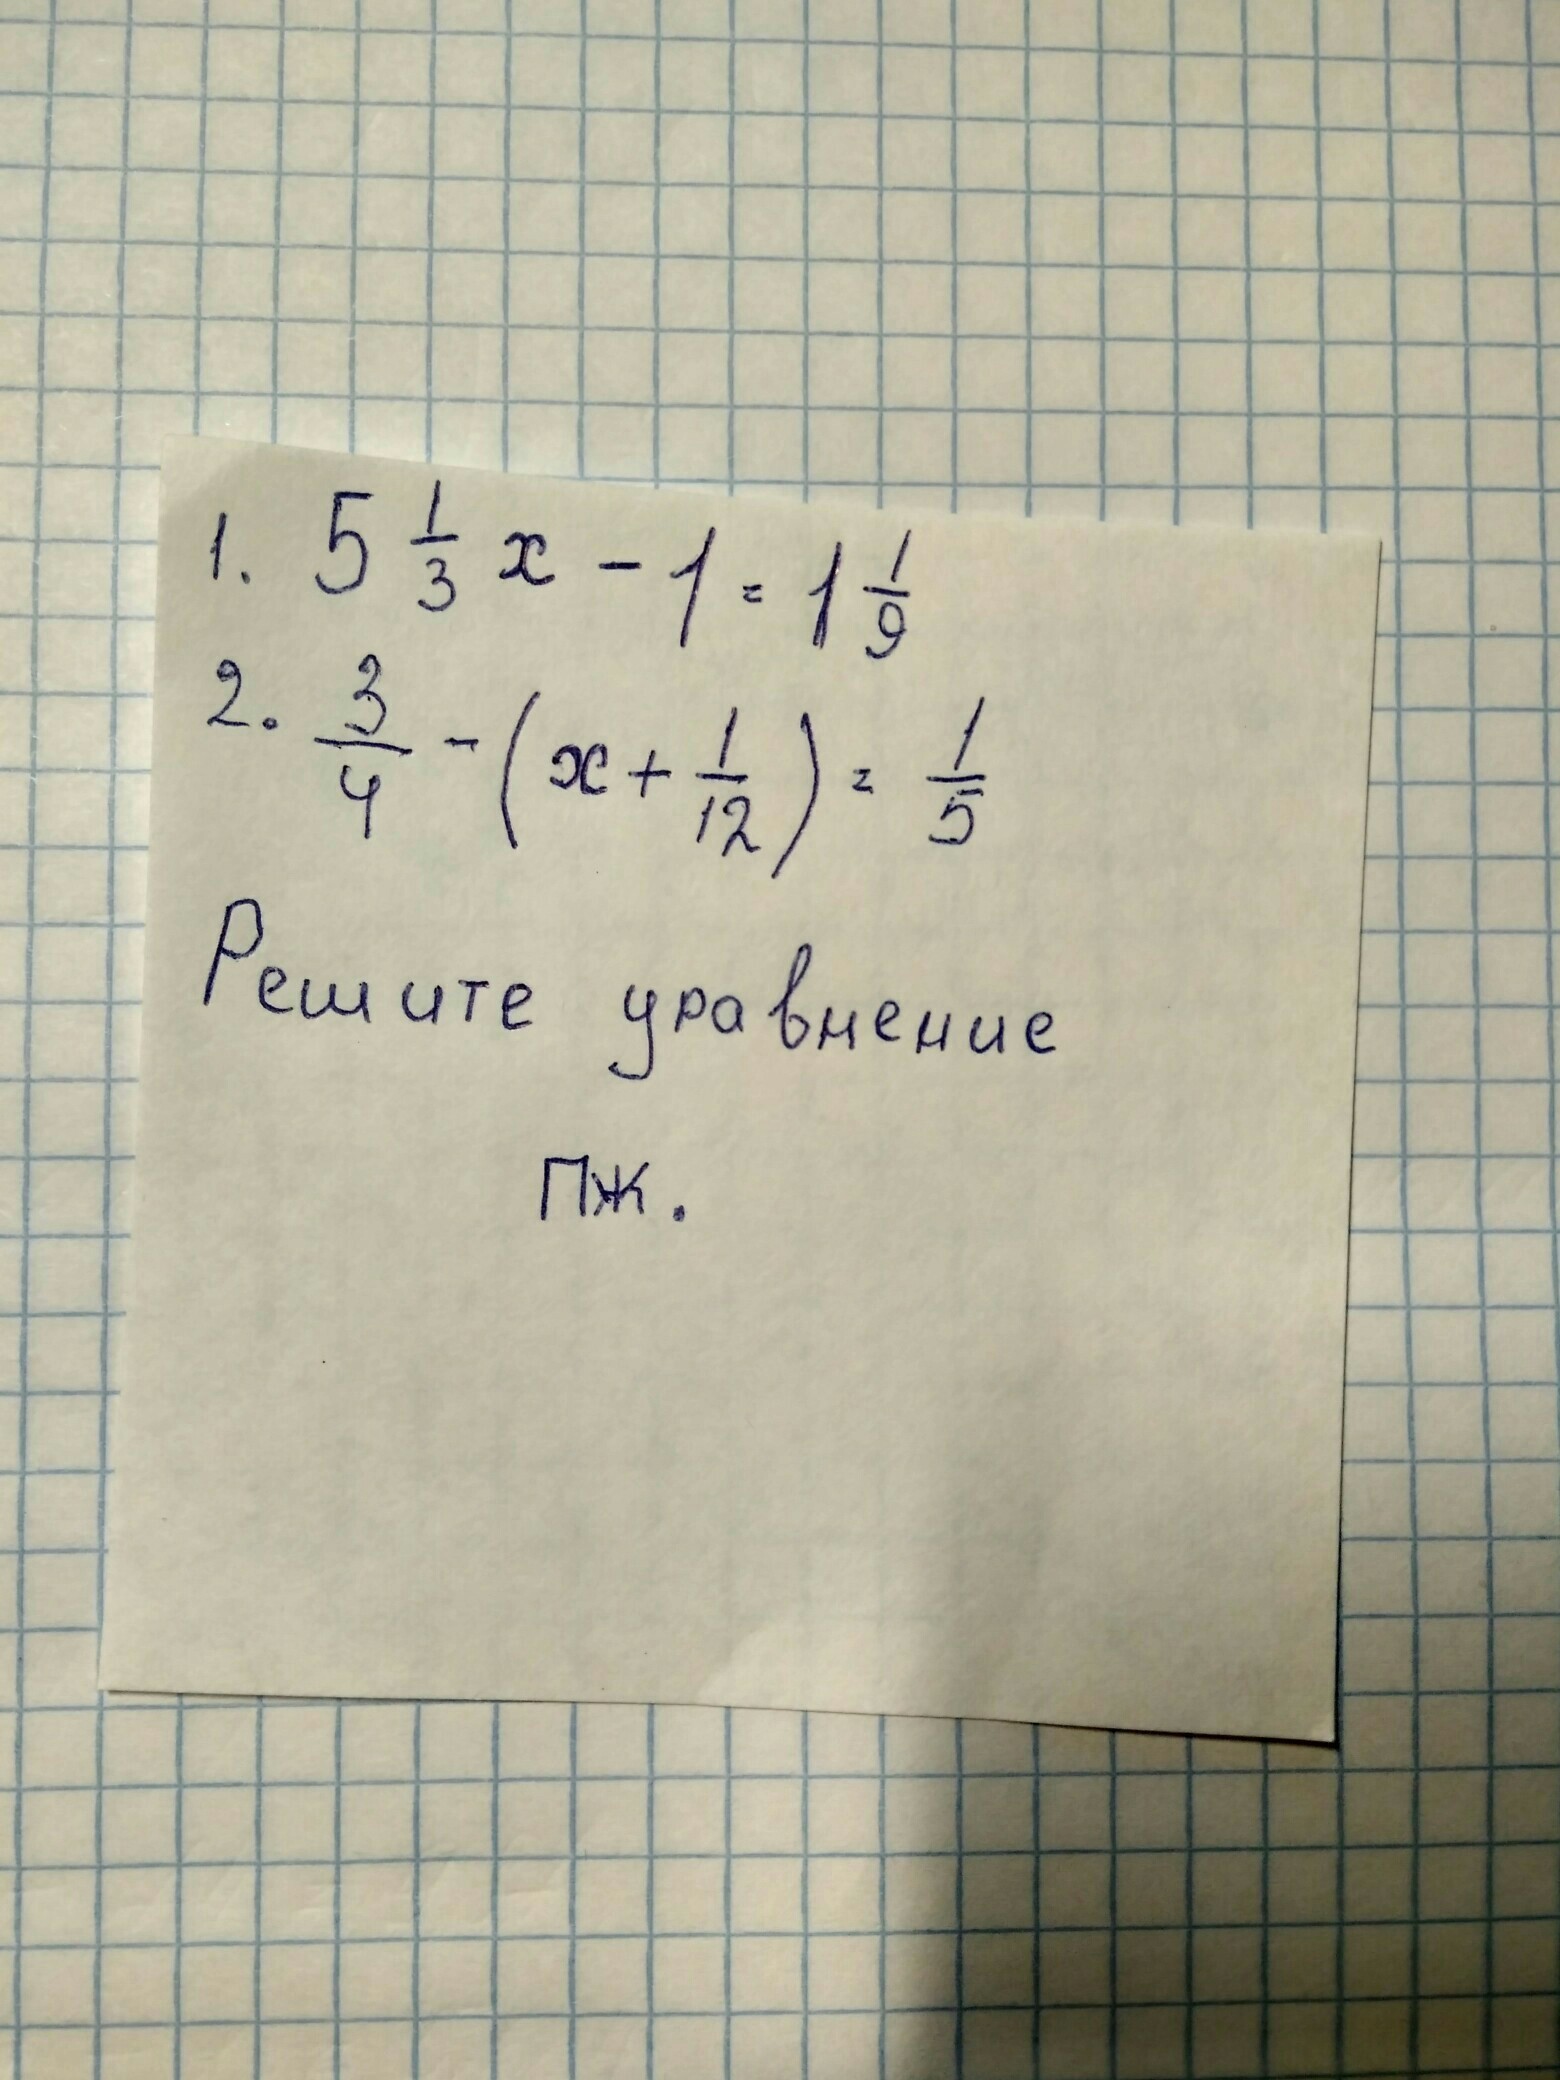 1. 5 1/3 x - 1 = 1 1/9
2. 3/4 - (x + 1/12) = 1/5
Решите уравнение
пж.